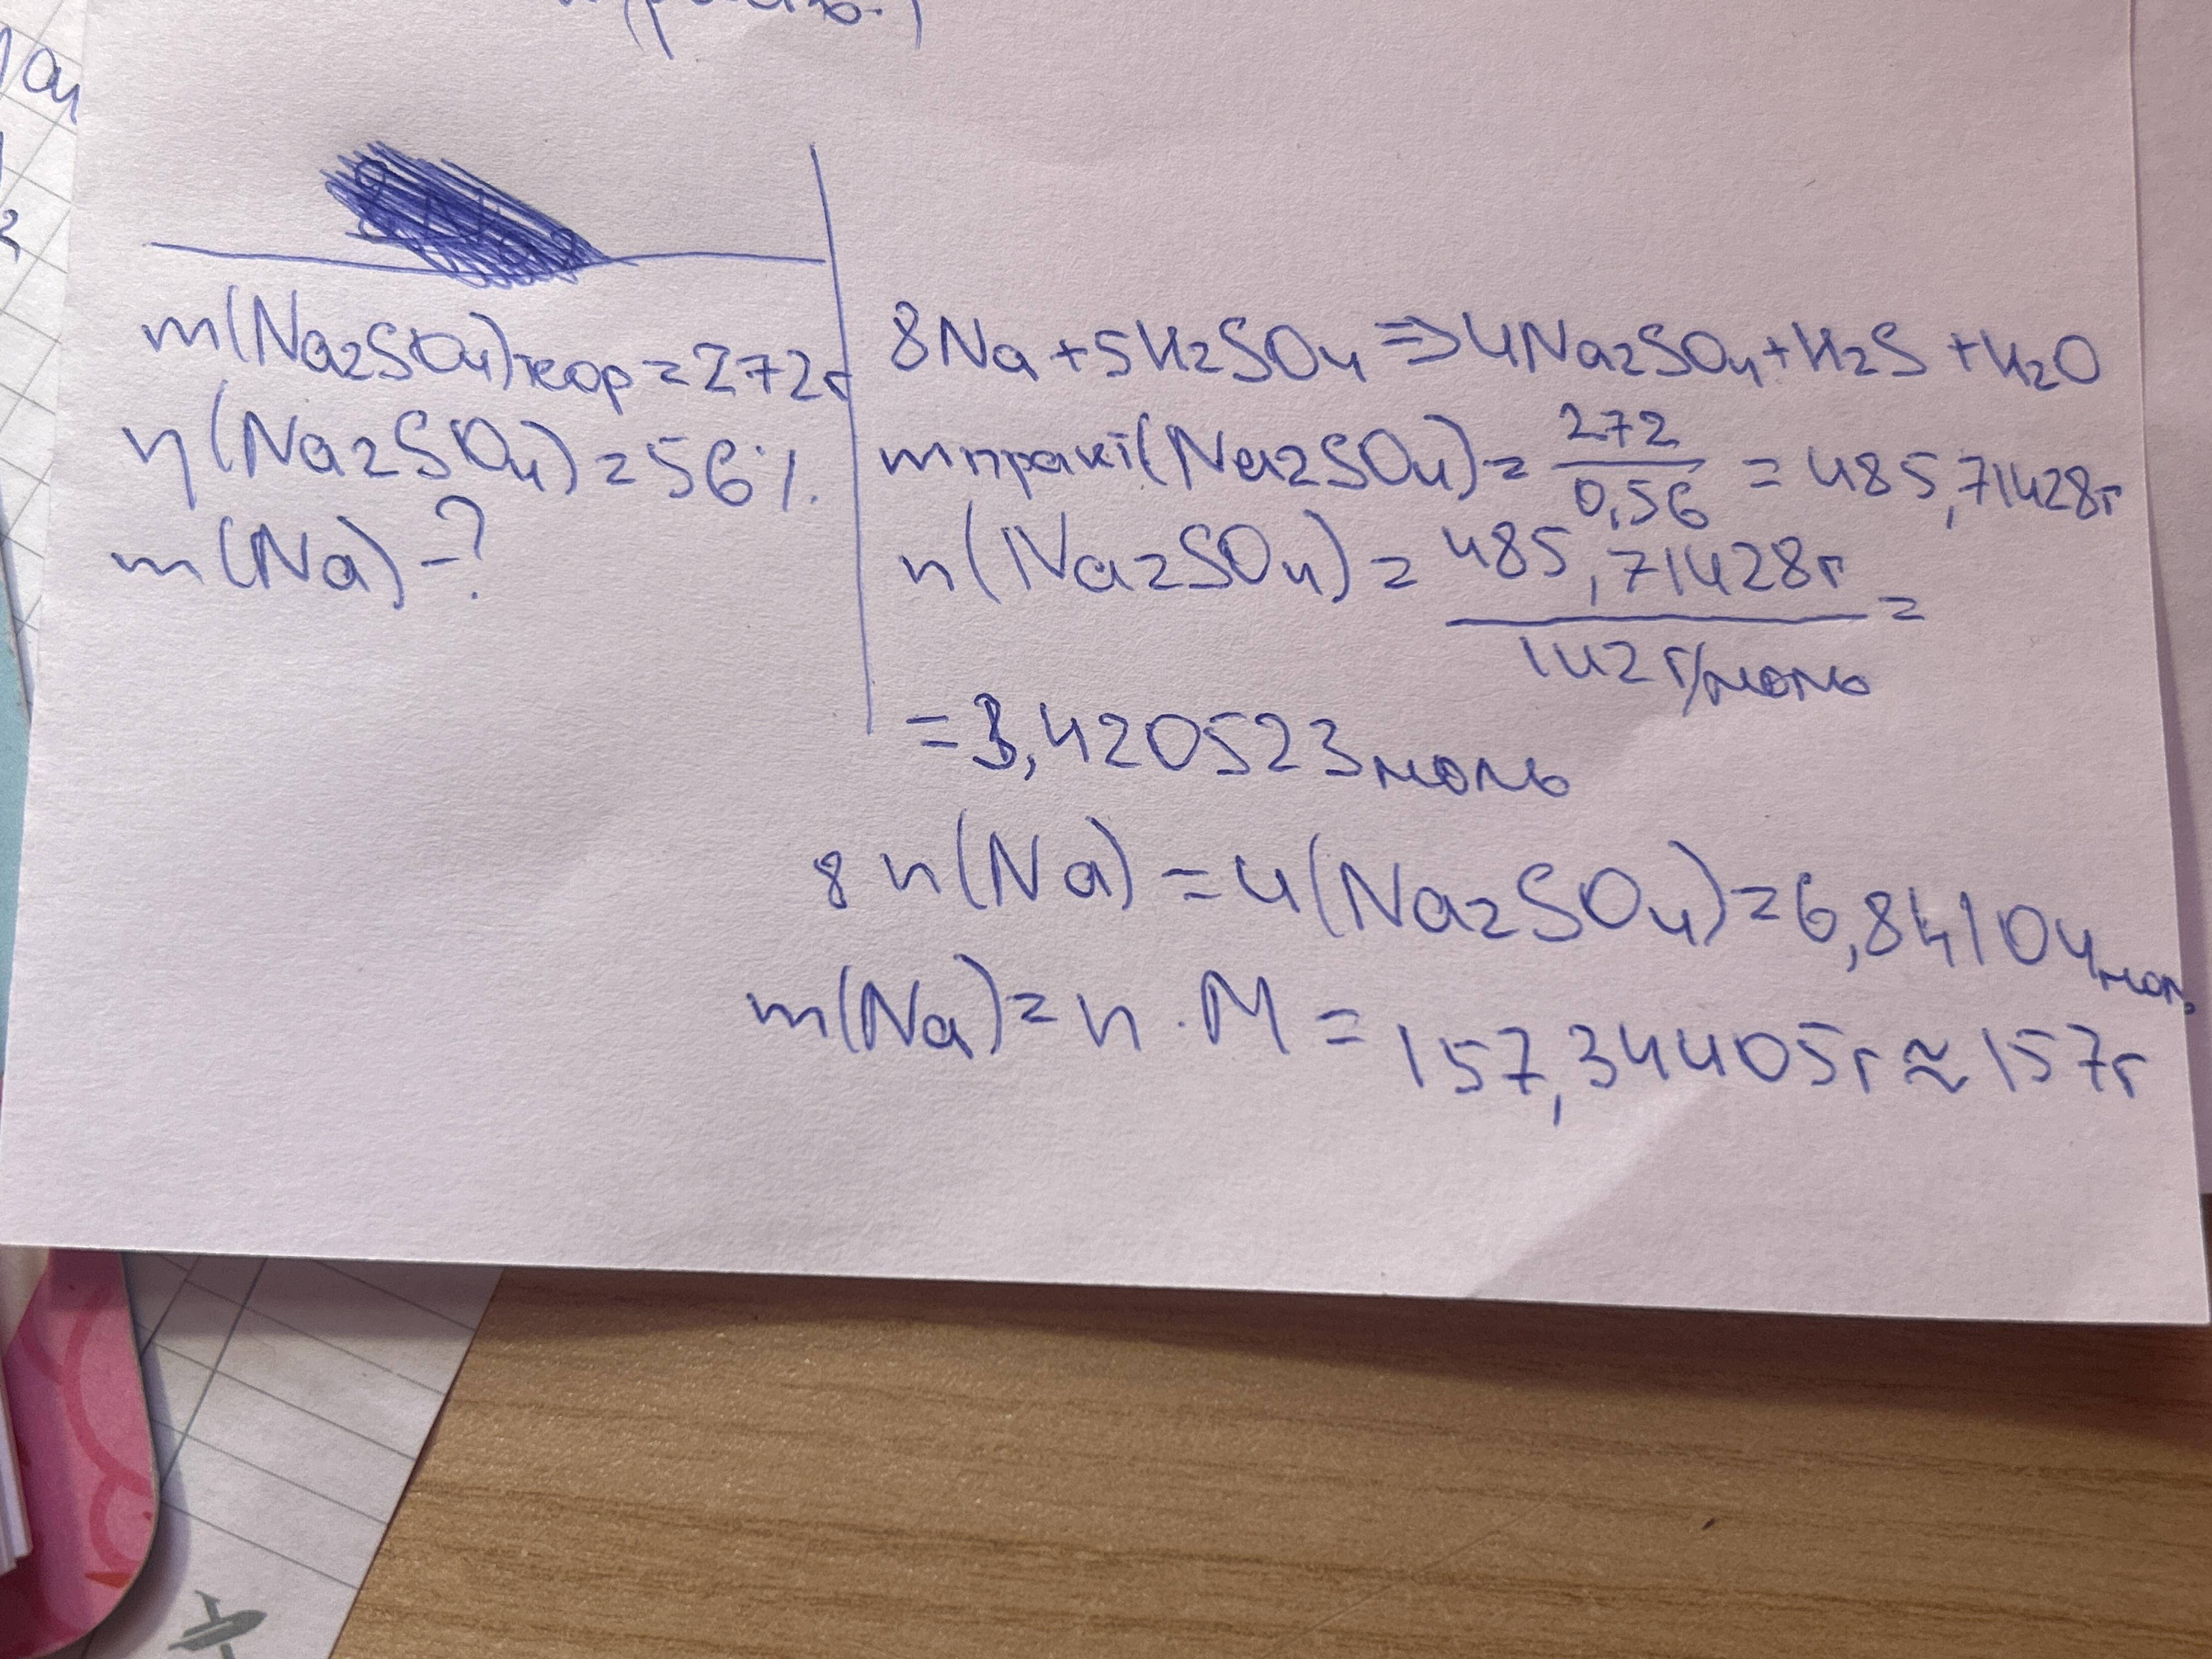 m(Na2SO4)теор=272г
η(Na2SO4)=56%
m(Na)-?
8Na+5H2SO4⇒4Na2SO4+H2S+H2O
mпракт(Na2SO4)=272/0,56=485,71428г
n(Na2SO4)=485,71428г/142г/моль=
=3,420523моль
8n(Na)=4(Na2SO4)=6,84104мол
m(Na)=n·M=157,34405г≈157г